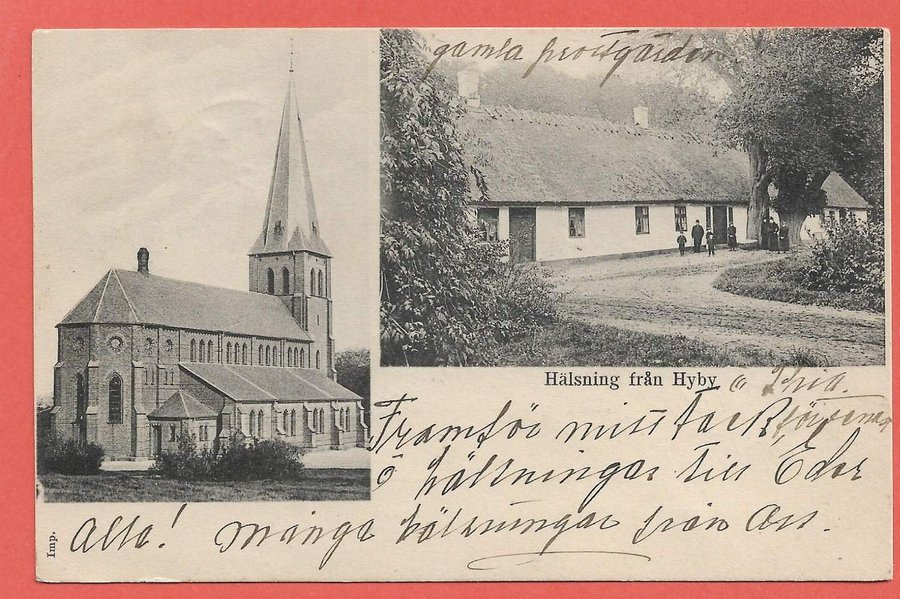 gamla prostgården
Hälsning från Hyby
Framför mitt tack
o hälsningar till Eder
Alla! Många hälsningar från Oss.
Imp.